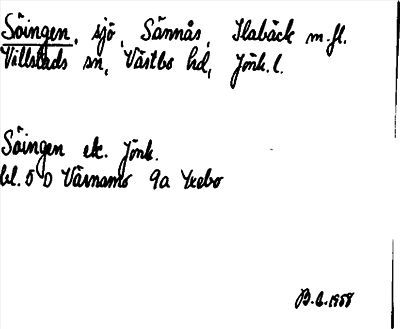 Söingen, sjö, Sännås, Ilabäck m.fl.
Villstads sn, Västbo hd, Jönk. l.
Söingen ek. Jönk.
bl. 5 D Värnamo 9a Yxebo
B.G. 1958